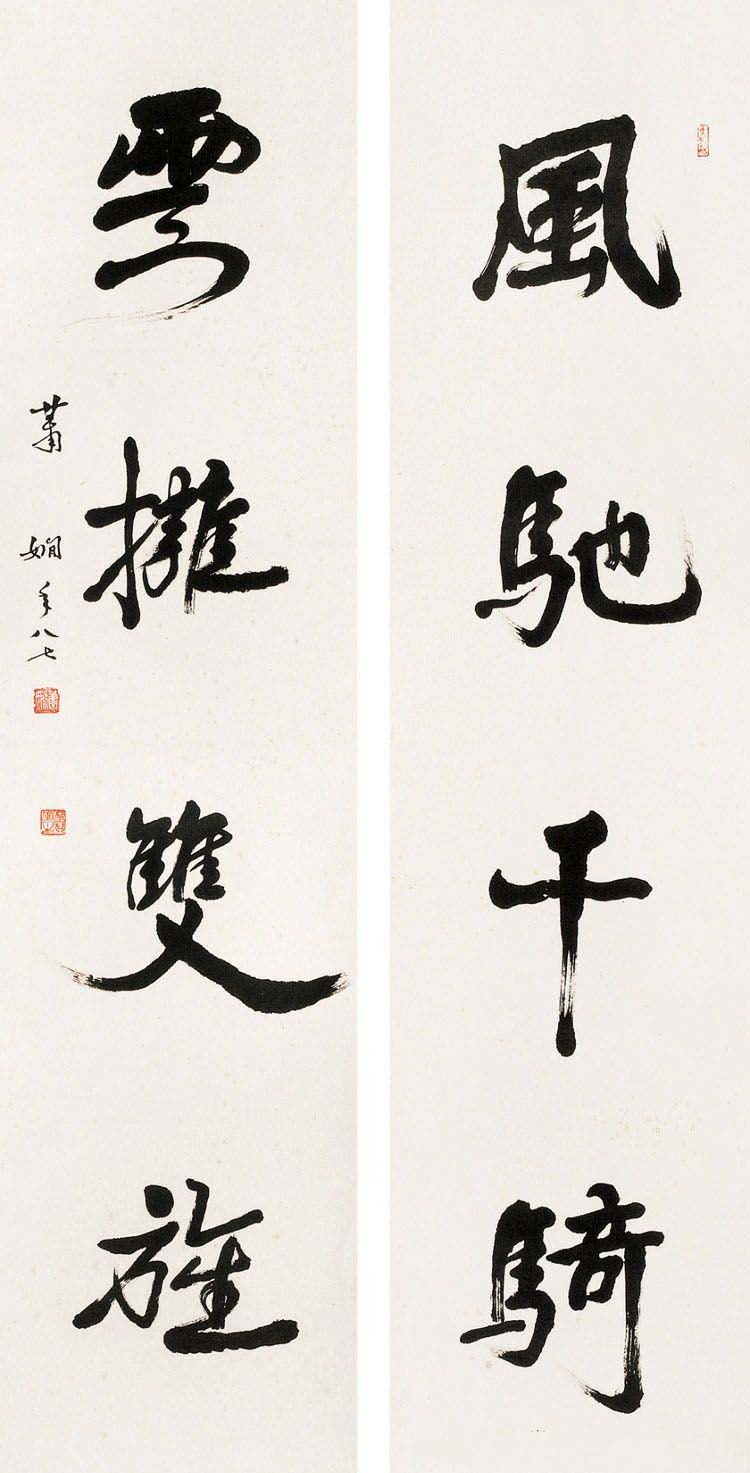 風馳千騎
雲擁雙旌
蕭嫺年八七